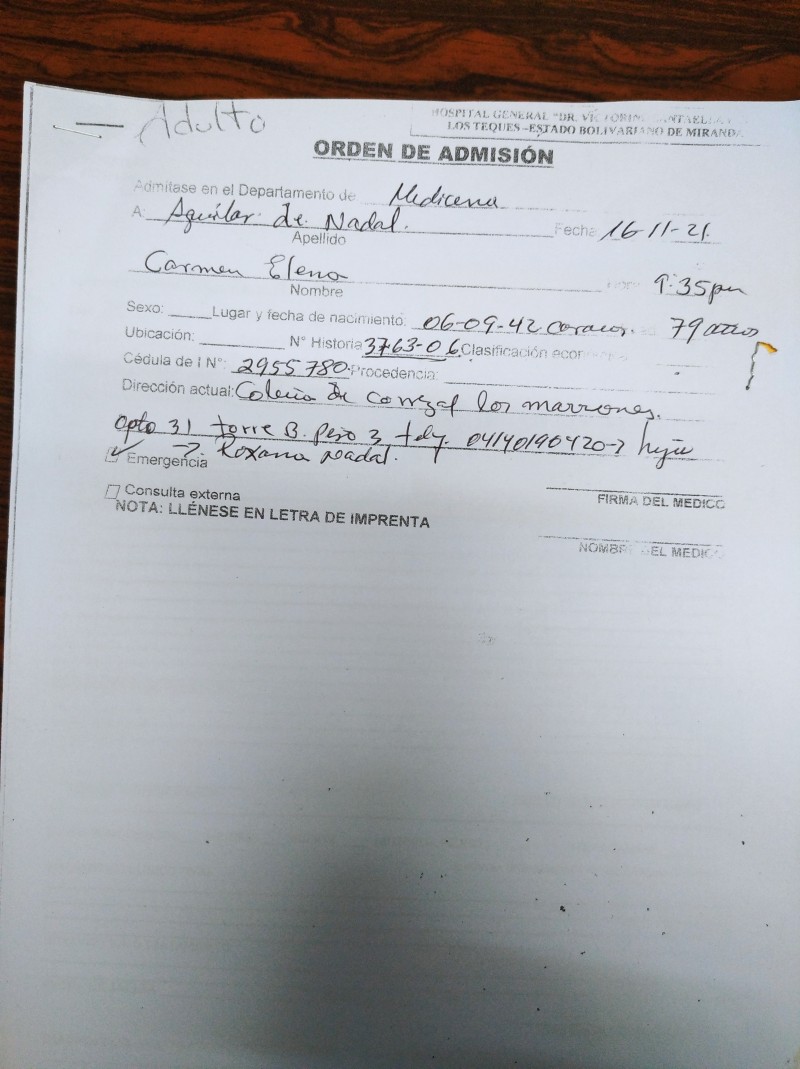 Adulto
HOSPITAL GENERAL "DR. VICTORINO SANTAELLA
LOS TEQUES -ESTADO BOLIVARIANO DE MIRANDA
ORDEN DE ADMISIÓN
Admítase en el Departamento de Medicina
A: Aguilar de Nadal. Fecha 16-11-21
Apellido
Carmen Elena 9:35pm
Nombre
Sexo: Lugar y fecha de nacimiento: 06-09-42 Caracas. 79 años
Ubicación: N° Historia 3763-06 Clasificación econ
Cédula de I N°: 2955780. Procedencia:
Dirección actual: de los marrones.
apto 31 torre B. piso 3 04140190420 hija
Emergencia → Roxana Nadal.
Consulta externa
FIRMA DEL MEDICO
NOTA: LLÉNESE EN LETRA DE IMPRENTA
NOMBRE DEL MEDICO